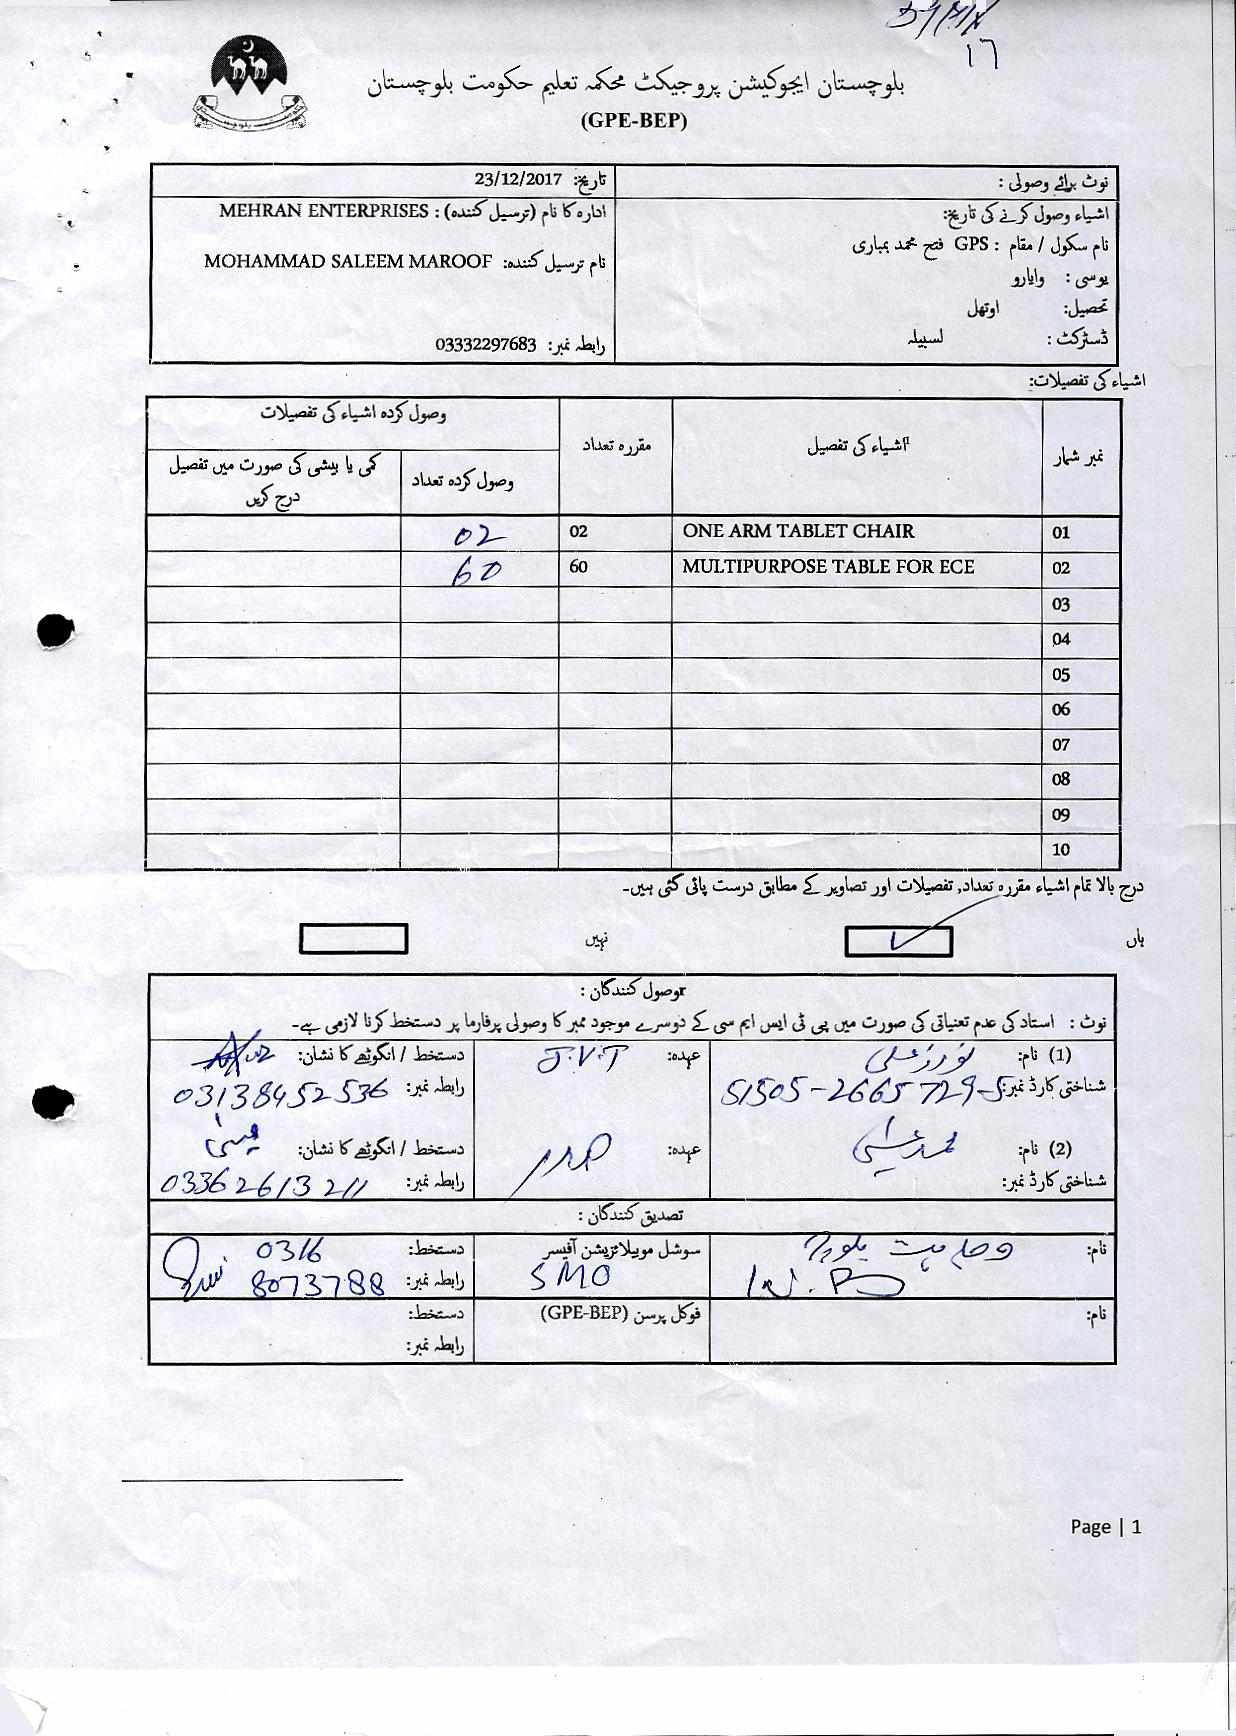 بلوچستان ایجوکیشن پروجیکٹ محکمہ تعلیم حکومت بلوچستان
(GPE-BEP)
نوٹ برائے وصولی :
تاریخ: 23/12/2017
اشیاء وصول کرنے کی تاریخ:
ادارہ کا نام (ترسیل کنندہ) : MEHRAN ENTERPRISES
نام سکول / مقام : GPS فتح محمد بمباری
نام ترسیل کنندہ: MOHAMMAD SALEEM MAROOF
یوسی : وایارو
تحصیل: اوتھل
ڈسٹرکٹ : لسبیلہ
رابطہ نمبر: 03332297683
اشیاء کی تفصیلات:
نمبر شمار اشیاء کی تفصیل مقررہ تعداد وصول کردہ اشیاء کی تفصیلات
وصول کردہ تعداد کمی یا بیشی کی صورت میں تفصیل درج کریں
01 ONE ARM TABLET CHAIR 02 02
02 MULTIPURPOSE TABLE FOR ECE 60 60
03
04
05
06
07
08
09
10
درج بالا تمام اشیاء مقررہ تعداد, تفصیلات اور تصاویر کے مطابق درست پائی گئی ہیں۔
ہاں نہیں
وصول کنندگان :
نوٹ : استاد کی عدم تعنیاتی کی صورت میں پی ٹی ایس ایم سی کے دوسرے موجود ممبر کا وصولی پرفارما پر دستخط کرنا لازمی ہے۔
(1) نام: عہدہ: J.V.T دستخط / انگوٹھے کا نشان:
شناختی کارڈ نمبر: 51505-2665729-5 رابطہ نمبر: 03138452536
(2) نام: عہدہ: صدر دستخط / انگوٹھے کا نشان:
شناختی کارڈ نمبر: رابطہ نمبر: 03362613211
تصدیق کنندگان :
نام: سوشل موبیلائزیشن آفیسر دستخط: 0316
SMO رابطہ نمبر: 8073788
نام: فوکل پرسن (GPE-BEP) دستخط:
رابطہ نمبر:
Page | 1